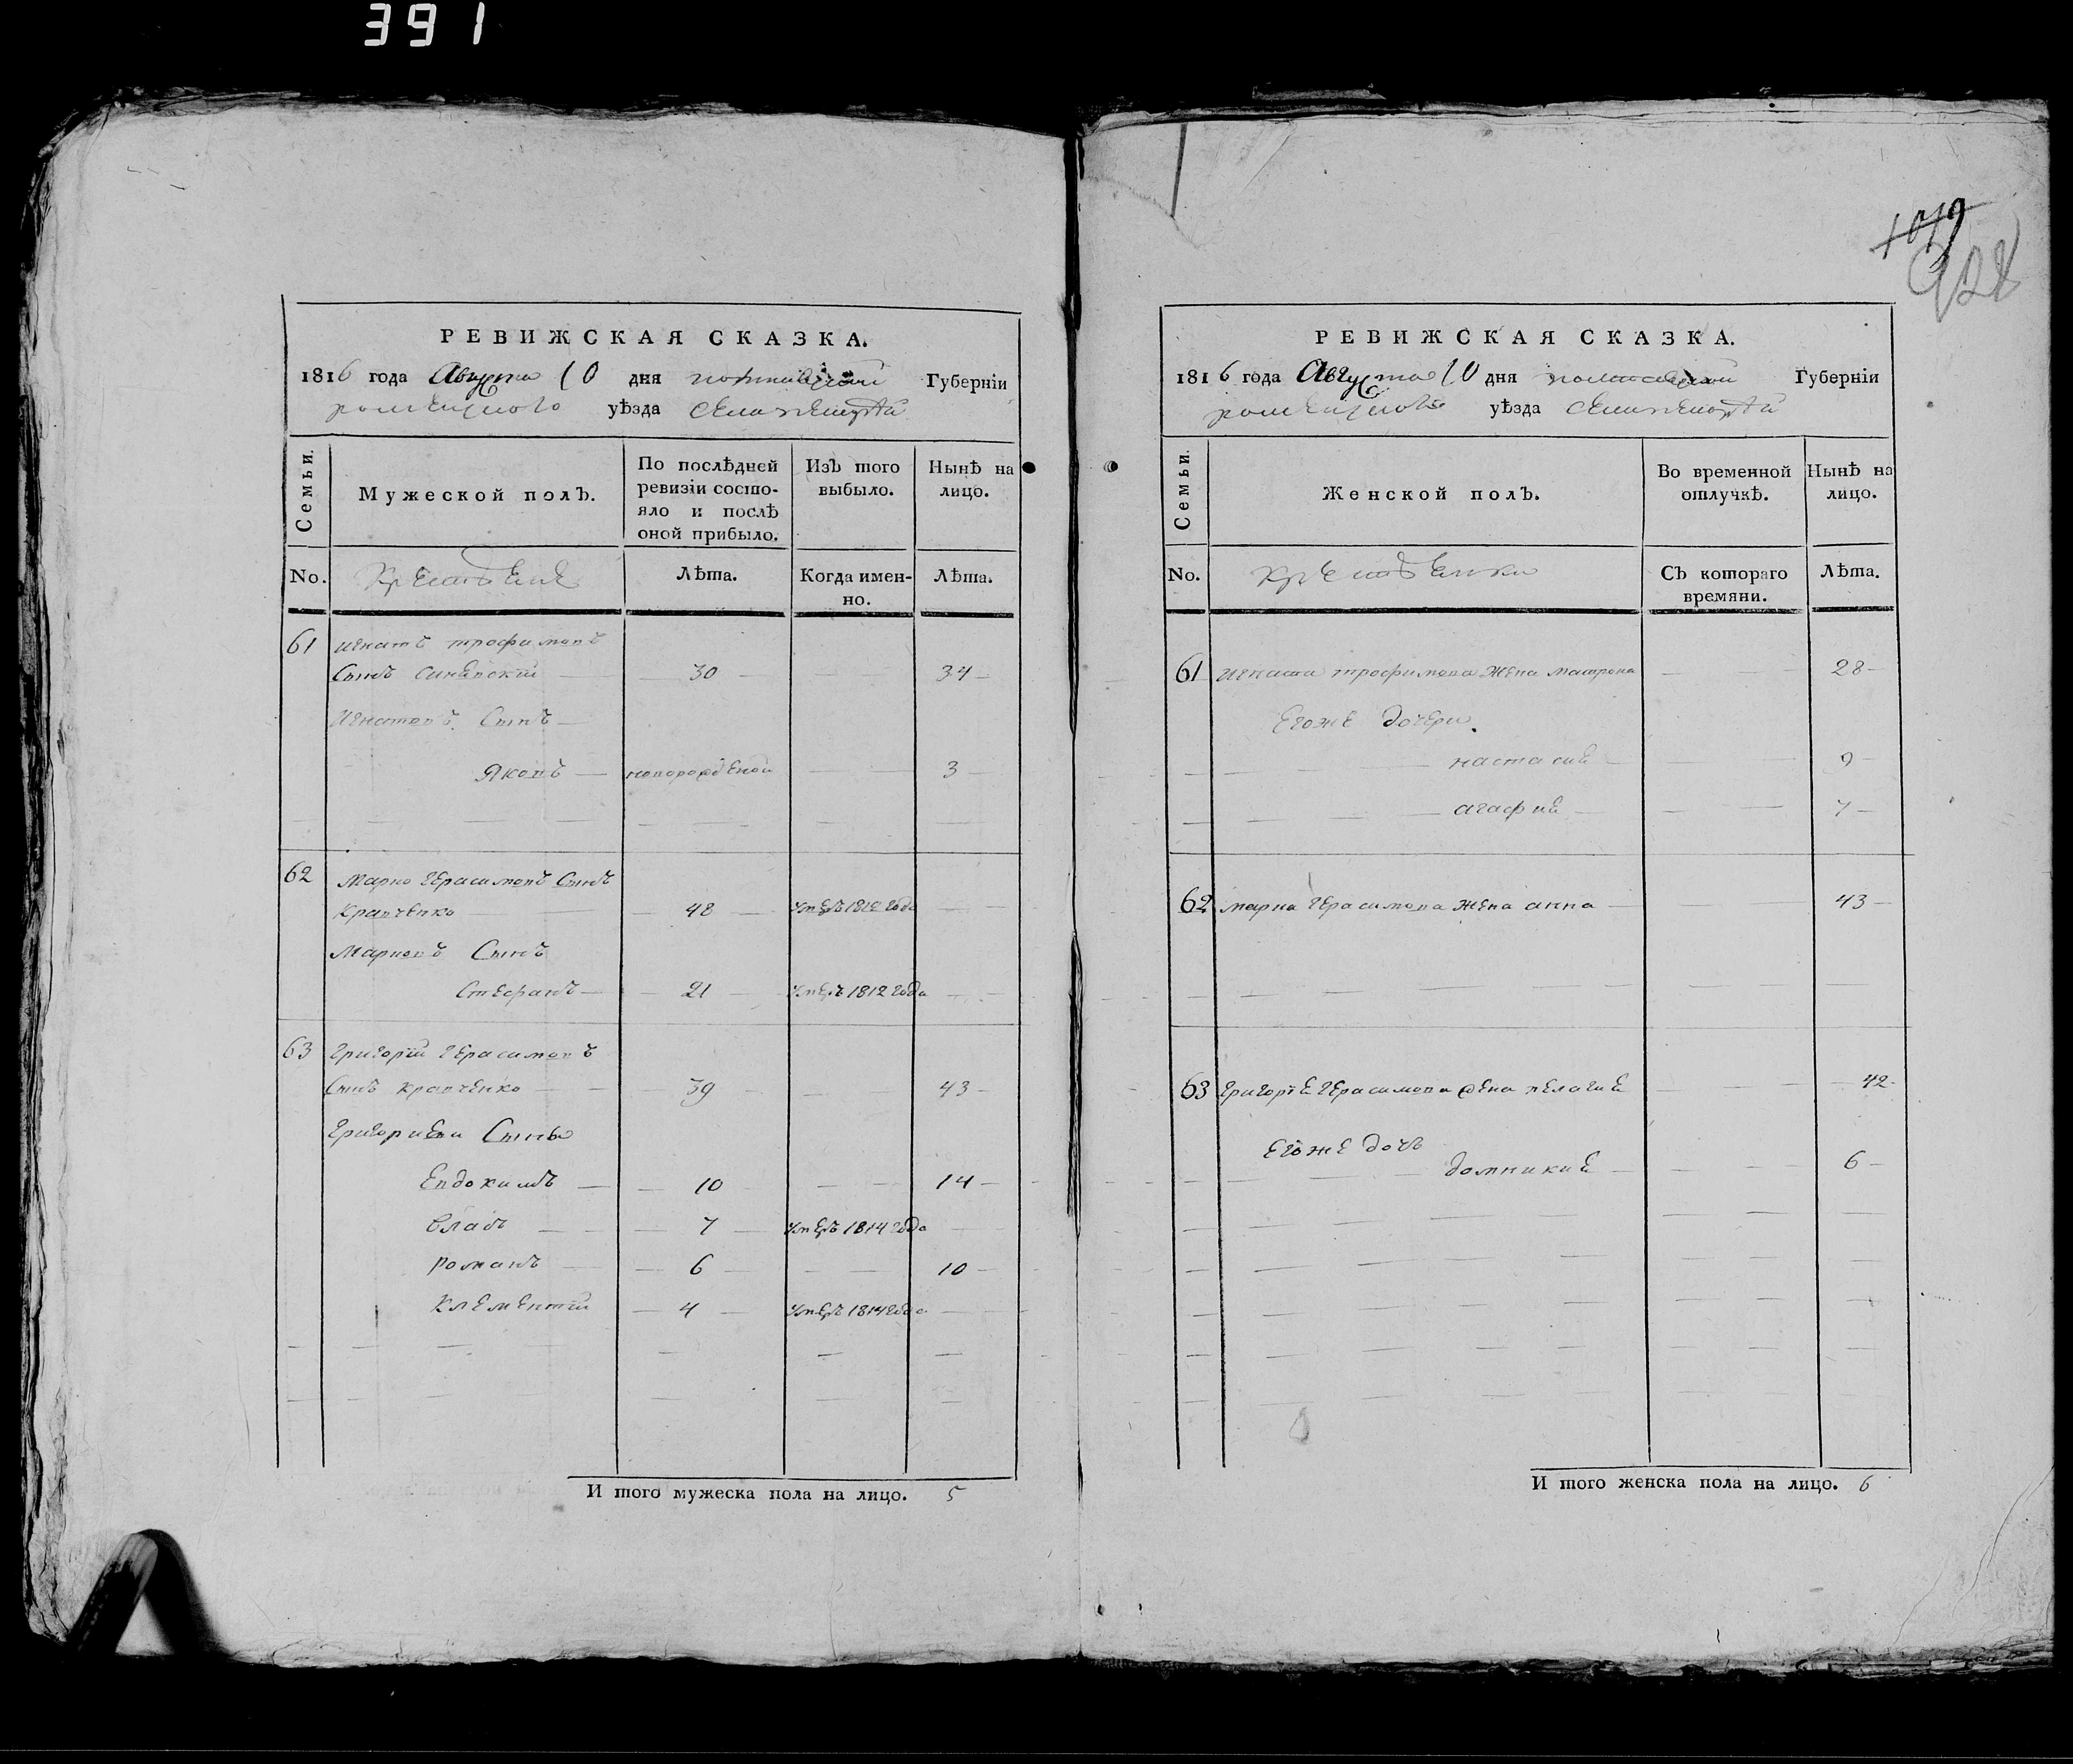 391
1019
928
РЕВИЖСКАЯ СКАЗКА.
1816 года Августа 10 дня полтавской Губерніи
роменского уѣзда села
Семьи.
Мужеской полъ.
По послѣдней ревизіи состо-
яло и послѣ
оной прибыло.
Изъ того
выбыло.
Нынѣ на
лицо.
No.
Крестьяне
Лѣта.
Когда имен-
но.
Лѣта.
61 игнатъ трофимовъ
Сынъ 30 34
Игнатовъ Сынъ
Яковъ новорожденой 3
62 Марко Герасимовъ Сынъ
Кравченко 48 умеръ 1812 года
Марковъ Сынъ
Стефанъ 21 умеръ 1812 года
63 Григорій Герасимовъ
Сынъ кравченко 39 43
Григориеви Сыны
Евдокимъ 10 14
Власъ 7 умеръ 1814 года
Романъ 6 10
Клементій 4 умеръ 1814 года
И того мужеска пола на лицо. 5
РЕВИЖСКАЯ СКАЗКА.
1816 года Августа 10 дня полтавской Губерніи
роменского уѣзда села
Семьи.
Женской полъ.
Во временной
отлучкѣ.
Нынѣ на
лицо.
No.
Крестьянки
Съ котораго
времяни.
Лѣта.
61 игната трофимова жена матрона 28
Егоже дочери
настасия 9
агафия 7
62 марка герасимова жена анна 43
63 Григорія Герасимова жена пелагия 42
Егоже дочь
домникия 6
И того женска пола на лицо. 6